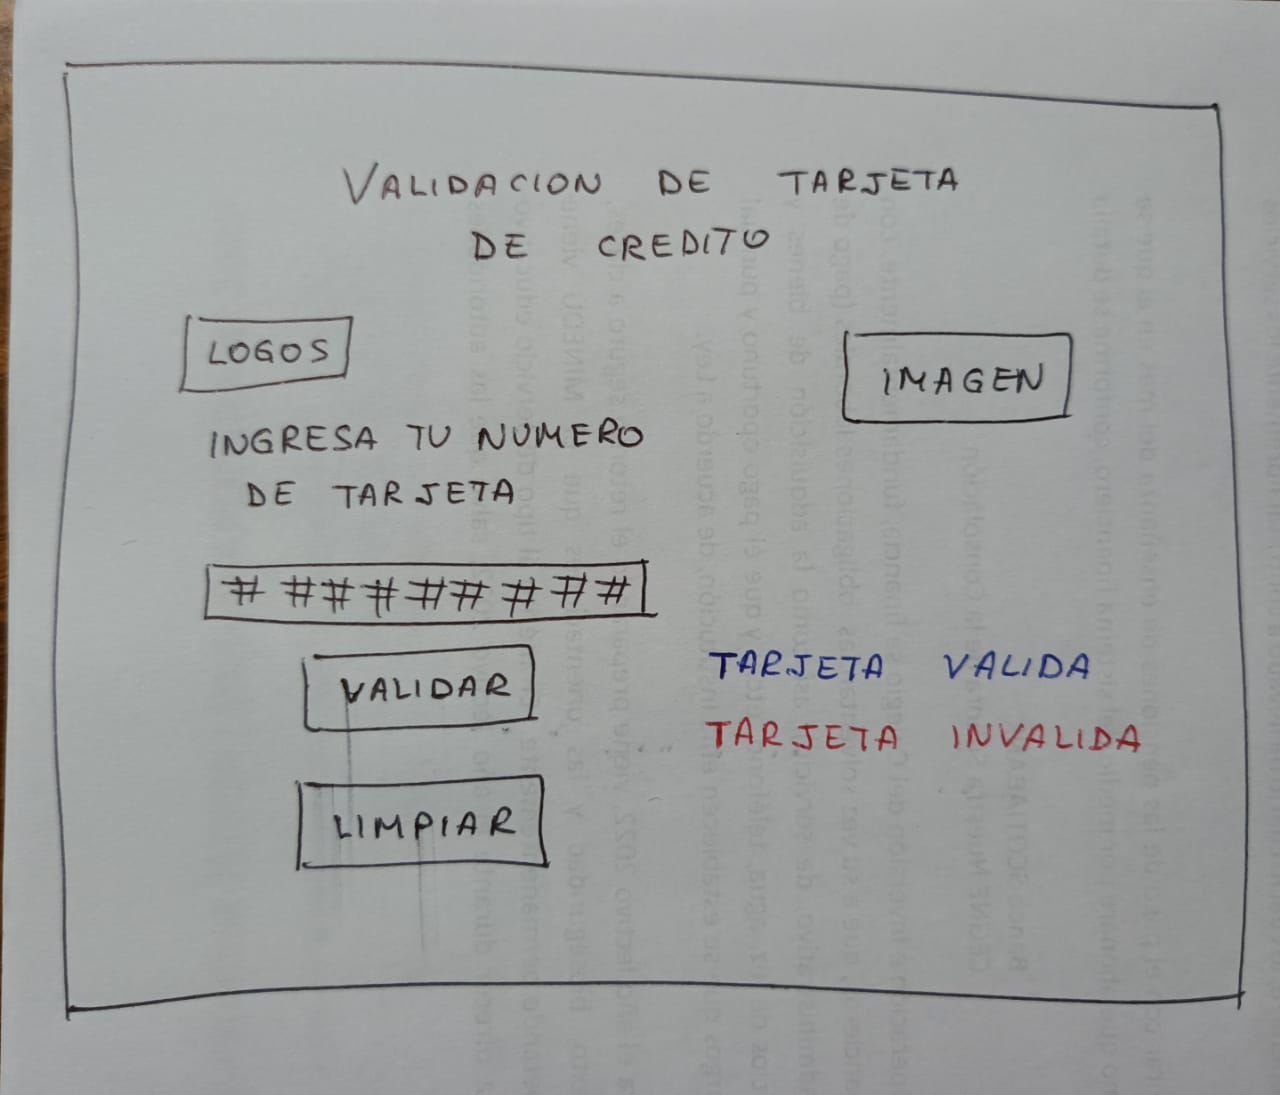 VALIDACION DE TARJETA
DE CREDITO
LOGOS
IMAGEN
INGRESA TU NUMERO
DE TARJETA
# # # # # # # # #
VALIDAR
TARJETA VALIDA
TARJETA INVALIDA
LIMPIAR